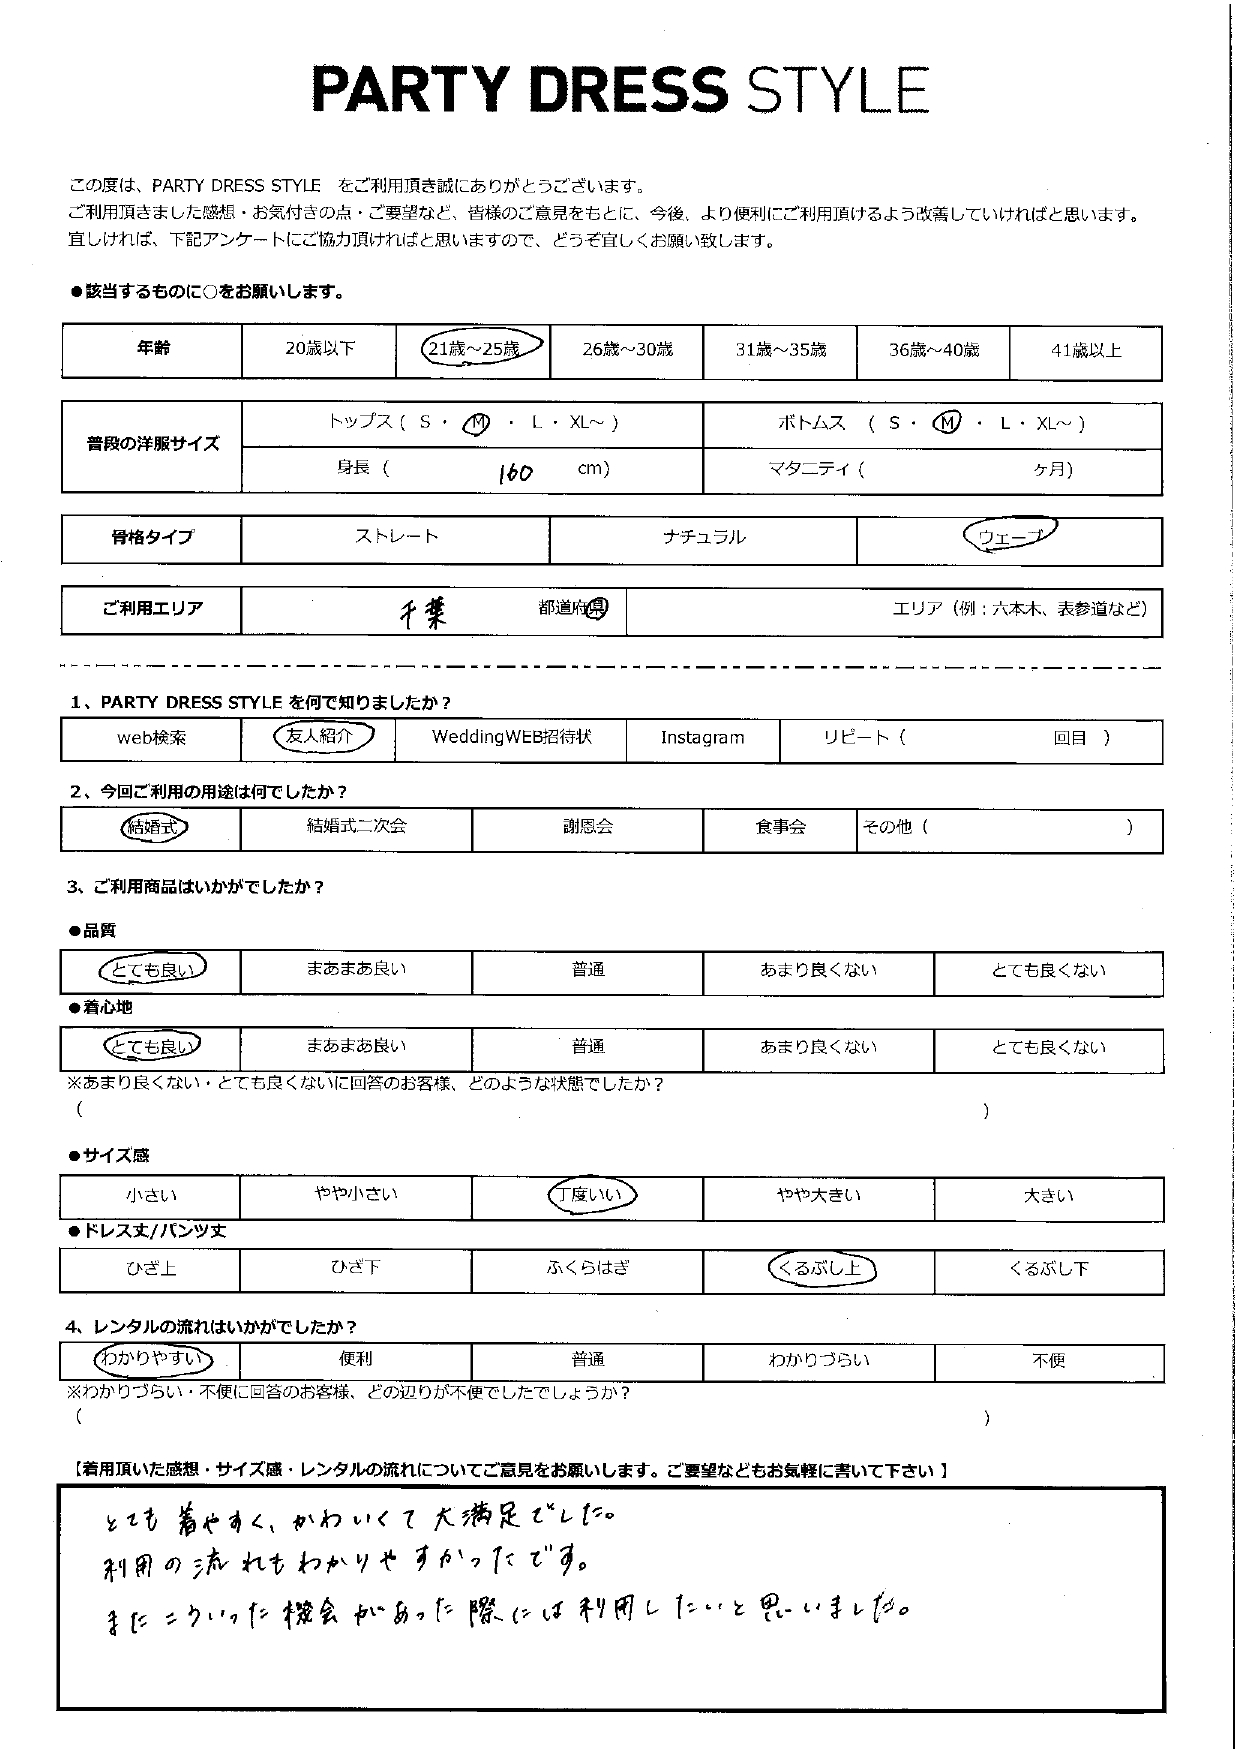 PARTY DRESS STYLE
この度は、PARTY DRESS STYLE　をご利用頂き誠にありがとうございます。
ご利用頂きました感想・お気付きの点・ご要望など、皆様のご意見をもとに、今後、より便利にご利用頂けるよう改善していければと思います。
宜しければ、下記アンケートにご協力頂ければと思いますので、どうぞ宜しくお願い致します。
●該当するものに○をお願いします。
年齢 20歳以下 21歳～25歳 26歳～30歳 31歳～35歳 36歳～40歳 41歳以上
普段の洋服サイズ
トップス ( S ・ M ・ L ・ XL～ ) ボトムス ( S ・ M ・ L ・ XL～ )
身長 ( 160 cm) マタニティ ( ヶ月)
骨格タイプ ストレート ナチュラル ウェーブ
ご利用エリア 千葉 都道府県 エリア（例：六本木、表参道など）
1、PARTY DRESS STYLE を何で知りましたか？
web検索 友人紹介 WeddingWEB招待状 Instagram リピート ( 回目 )
2、今回ご利用の用途は何でしたか？
結婚式 結婚式二次会 謝恩会 食事会 その他 ( )
3、ご利用商品はいかがでしたか？
●品質
とても良い まあまあ良い 普通 あまり良くない とても良くない
●着心地
とても良い まあまあ良い 普通 あまり良くない とても良くない
※あまり良くない・とても良くないに回答のお客様、どのような状態でしたか？
( )
●サイズ感
小さい やや小さい 丁度いい やや大きい 大きい
●ドレス丈/パンツ丈
ひざ上 ひざ下 ふくらはぎ くるぶし上 くるぶし下
4、レンタルの流れはいかがでしたか？
わかりやすい 便利 普通 わかりづらい 不便
※わかりづらい・不便に回答のお客様、どの辺りが不便でしたでしょうか？
( )
【着用頂いた感想・サイズ感・レンタルの流れについてご意見をお願いします。ご要望などもお気軽に書いて下さい】
とても着やすく、かわいくて大満足でした。
利用の流れもわかりやすかったです。
またこういった機会があった際には利用したいと思いました。